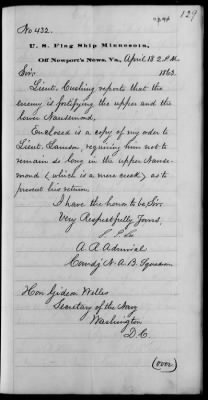 129
No 432.
U. S. Flag Ship Minnesota,
Off Newport's News, Va., April 18 2 P.M.
1863.
Sir:
Lieut. Cushing reports that the
enemy is fortifying the upper and the
lower Nansemond,
Enclosed is a copy of my order to
Lieut. Lamson, requiring him not to
remain so long in the upper Nanse-
mond (which is a mere creek) as to
prevent his return.
I have the honor to be, Sir
Very Respectfully Yours,
S. P. Lee
A. R. Admiral
Comdg N. A. B. Squadron
Hon Gideon Welles
Secretary of the Navy
Washington
D.C.
(over)